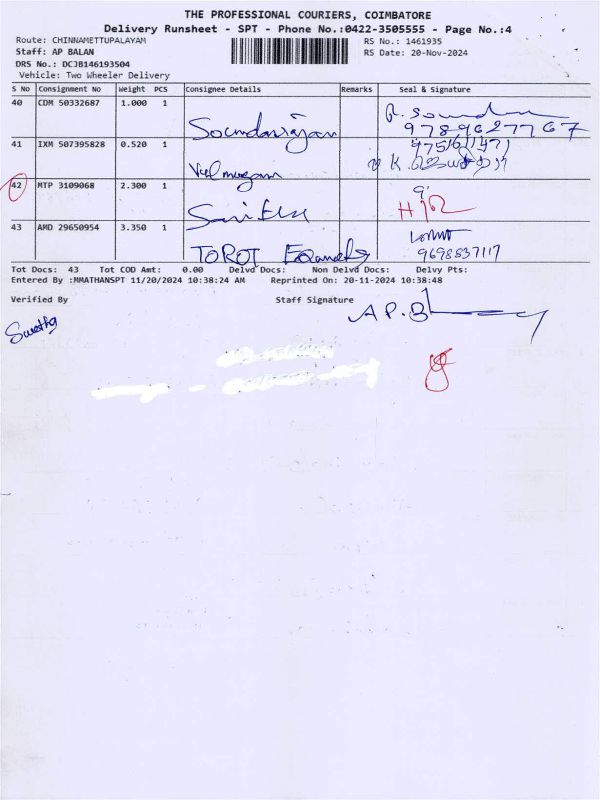 THE PROFESSIONAL COURIERS, COIMBATORE
Delivery Runsheet - SPT - Phone No.:0422-3505555 - Page No.:4
Route: CHINNAMETTUPALAYAM RS No.: 1461935
Staff: AP BALAN RS Date: 20-Nov-2024
DRS No.: DCJB146193504
Vehicle: Two Wheeler Delivery
S No Consignment No Weight PCS Consignee Details Remarks Seal & Signature
40 CDM 50332687 1.000 1 Soundarajan
9789627767
41 IXM 507395828 0.520 1 Velmurugan
42 MTP 3109068 2.300 1
43 AMD 29650954 3.350 1
9698837117
Tot Docs: 43 Tot COD Amt: 0.00 Delvd Docs: Non Delvd Docs: Delvy Pts:
Entered By :MMATHANSPT 11/20/2024 10:38:24 AM Reprinted On: 20-11-2024 10:38:48
Verified By Staff Signature
A P. B